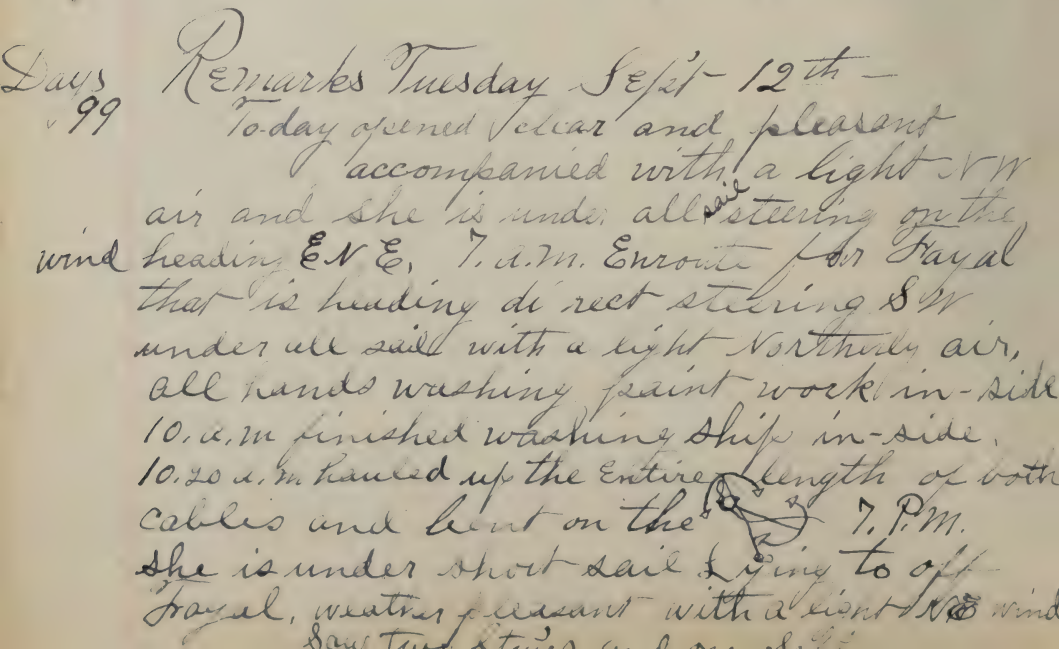 Days Remarks Tuesday Sept 12th –
99 To-day opened clear and pleasant
accompanied with a light NW
air and she is under all sail steering on the
wind heading ENE. 7. a.m. Enroute for Fayal
that is heading di rect steering SW
under all sail with a light Northerly air,
all hands washing paint work in-side
10. a.m finished washing ship in-side.
10.20 a.m hauled up the Entire length of both
cables and bent on the 7. P.M.
she is under short sail Lying to off
Fayal, weather pleasant with a light NE wind
Saw two and one